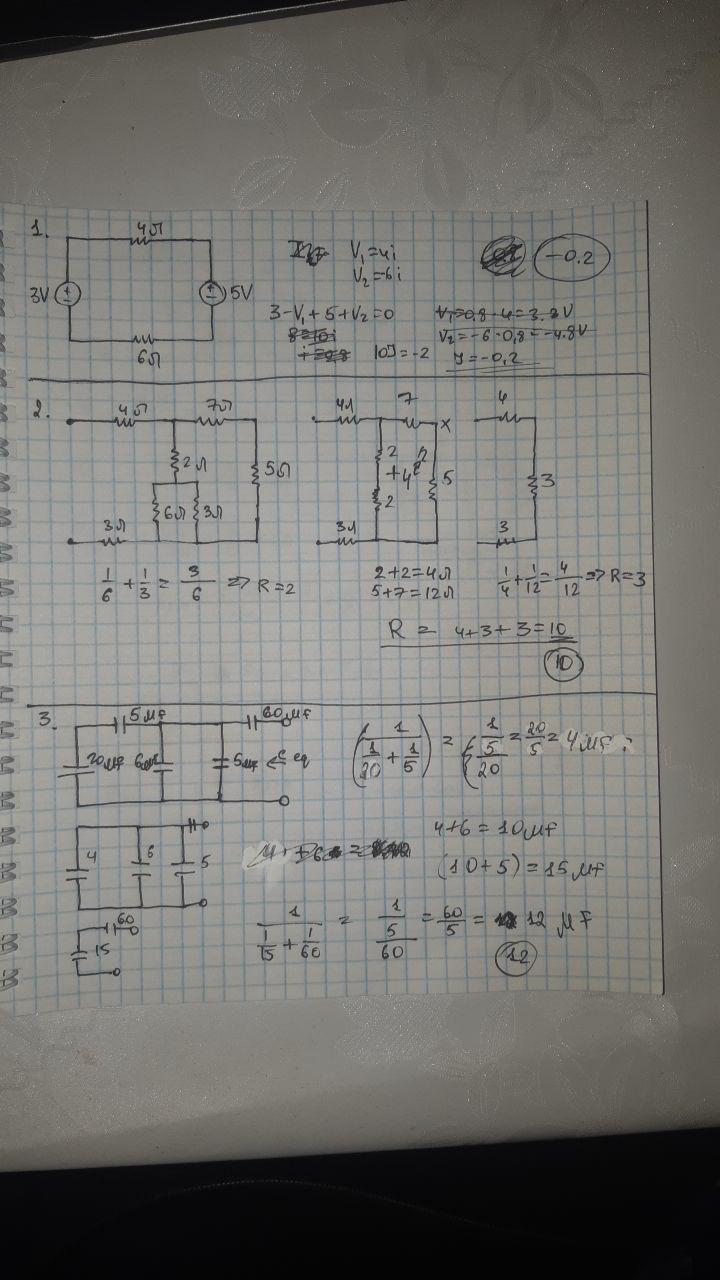 1.
4Ω
3V
5V
6Ω
V₁=4i
V₂=-6i
-0.2
3-V₁+5+V₂=0
10I=-2
I=-0,2
2.
4Ω 7Ω
2Ω
5Ω
6Ω 3Ω
3Ω
4Ω 7 x
2
+4
5
2
3Ω
4
3
3
1/6 + 1/3 = 3/6 => R=2
2+2=4Ω
5+7=12Ω
1/4 + 1/12 = 4/12 => R=3
R = 4+3+3=10
10
3.
5μF 60μF
20μF 6μF 5μF ← C eq
(1/(1/20 + 1/5)) = (1/(5/20)) = 20/5 = 4μF
4+6=10μF
(10+5)=15μF
4 6 5
60
15
1/(1/15 + 1/60) = 1/(5/60) = 60/5 = 12μF
12